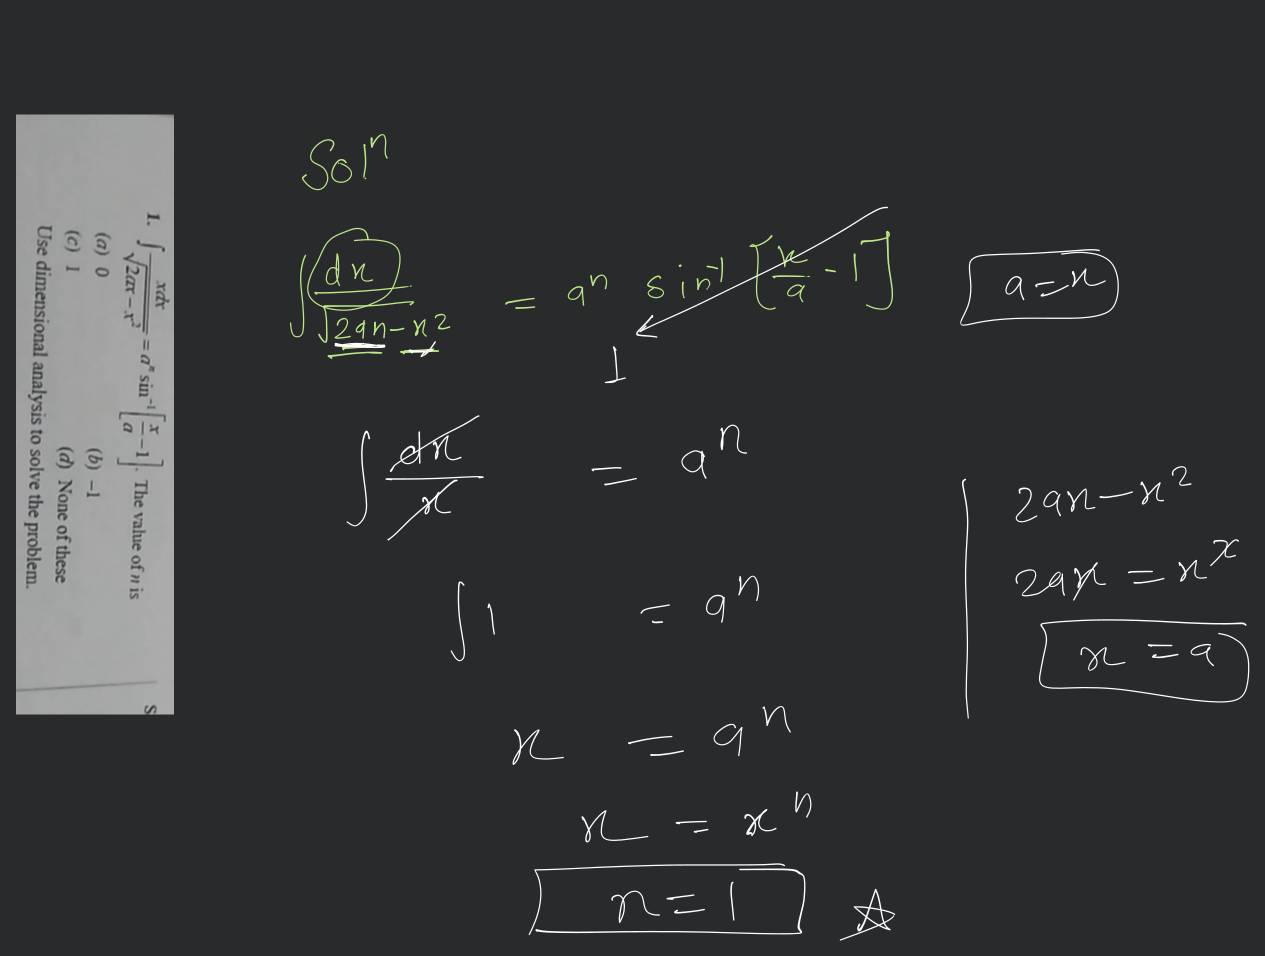 1. ∫ xdx/√2ax – x² = aⁿ sin⁻¹ [x/a – 1]. The value of n is
(a) 0 (b) –1
(c) 1 (d) None of these
Use dimensional analysis to solve the problem.
S
Solⁿ
∫ dx/√2ax – x² = aⁿ sin⁻¹ [x/a – 1]
a = x
1
∫ dx/x = aⁿ
∫ 1 = aⁿ
x = aⁿ
x = xⁿ
n = 1
2ax – x²
2ax = x²
x = a